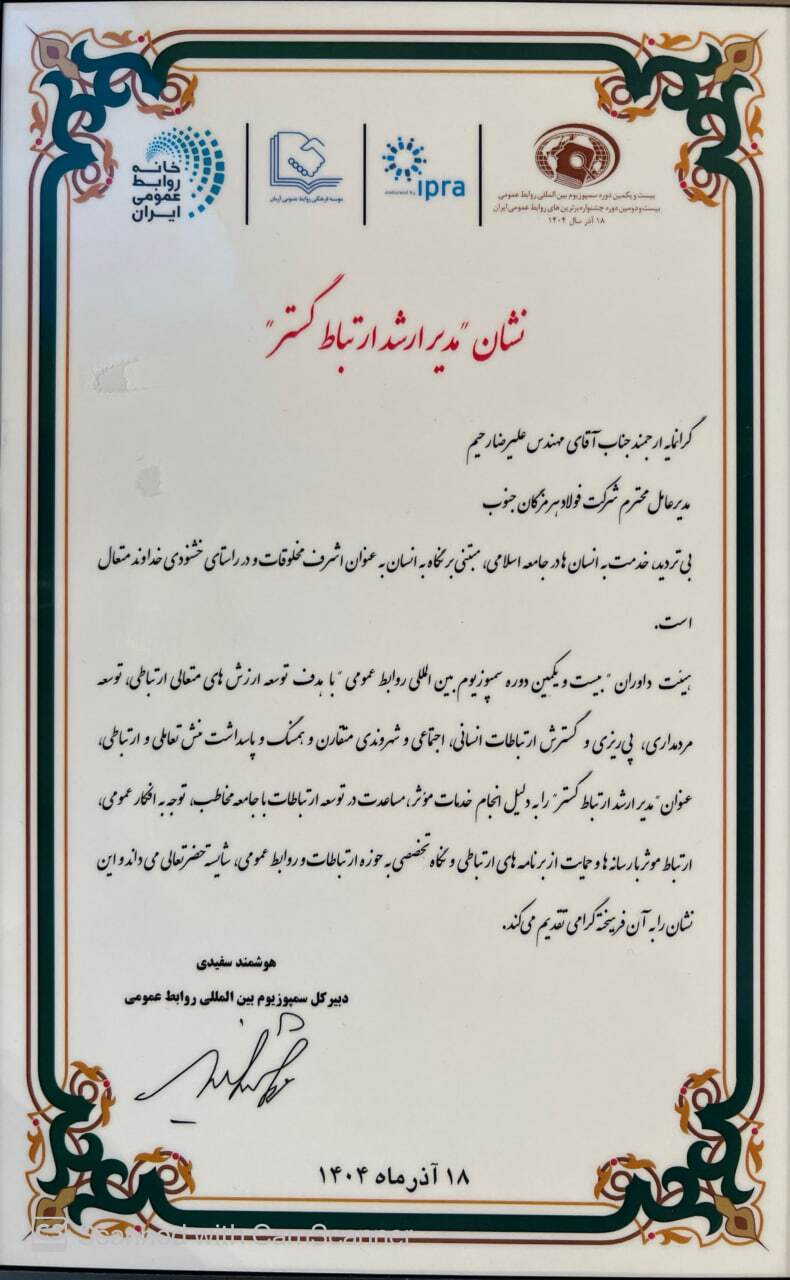 خانه
روابط
عمومی
ایران
موسسه فرهنگی روابط عمومی آرمان
endorsed by ipra
بیست و یکمین دوره سمپوزیوم بین المللی روابط عمومی
بیست و دومین دوره جشنواره برترین های روابط عمومی ایران
۱۸ آذر سال ۱۴۰۴
نشان "مدیر ارشد ارتباط گستر"
گرانمایه ارجمند جناب آقای مهندس علیرضا رحیم
مدیرعامل محترم شرکت فولاد هرمزگان جنوب
بی تردید، خدمت به انسان ها در جامعه اسلامی، مبتنی بر نگاه به انسان به عنوان اشرف مخلوقات و در راستای خشنودی خداوند متعال
است.
هیئت داوران "بیست و یکمین دوره سمپوزیوم بین المللی روابط عمومی" با هدف توسعه ارزش های متعالی ارتباطی، توسعه
مردمداری، پی ریزی و گسترش ارتباطات انسانی، اجتماعی و شهروندی متقارن و همسنگ و پاسداشت منش تعاملی و ارتباطی،
عنوان "مدیر ارشد ارتباط گستر" را به دلیل انجام خدمات مؤثر، مساعدت در توسعه ارتباطات با جامعه مخاطب، توجه به افکار عمومی،
ارتباط موثر با رسانه ها و حمایت از برنامه های ارتباطی و نگاه تخصصی به حوزه ارتباطات و روابط عمومی، شایسته حضرتعالی می داند و این
نشان را به آن فرهیخته گرامی تقدیم می کند.
هوشمند سفیدی
دبیر کل سمپوزیوم بین المللی روابط عمومی
۱۸ آذر ماه ۱۴۰۴
Scanned with CamScanner